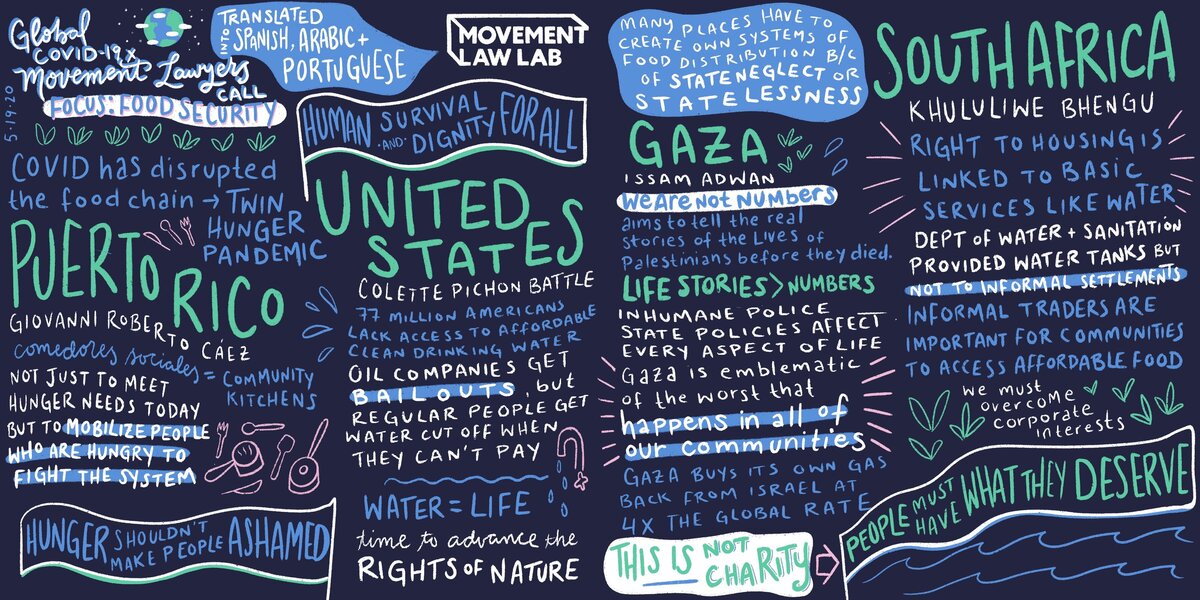 Global
COVID-19 x
Movement Lawyers
CALL
FOCUS: FOOD SECURITY
5·19·20
COVID has disrupted
the food chain → TWIN
HUNGER
PANDEMIC
PUERTO
RICO
GIOVANNI ROBERTO CÁEZ
comedores sociales = COMMUNITY
KITCHENS
NOT JUST TO MEET
HUNGER NEEDS TODAY
BUT TO MOBILIZE PEOPLE
WHO ARE HUNGRY TO
FIGHT THE SYSTEM
HUNGER SHOULDN'T
MAKE PEOPLE ASHAMED
TRANSLATED
INTO SPANISH, ARABIC +
PORTUGUESE
MOVEMENT
LAW LAB
HUMAN SURVIVAL
·AND· DIGNITY FOR ALL
UNITED
STATES
COLETTE PICHON BATTLE
77 MILLION AMERICANS
LACK ACCESS TO AFFORDABLE
CLEAN DRINKING WATER
OIL COMPANIES GET
BAILOUTS, but
REGULAR PEOPLE GET
WATER CUT OFF WHEN
THEY CAN'T PAY
WATER = LIFE
time to advance the
RIGHTS OF NATURE
MANY PLACES HAVE TO
CREATE OWN SYSTEMS OF
FOOD DISTRIBUTION B/C
OF STATE NEGLECT OR
STATELESSNESS
GAZA
ISSAM ADWAN
We Are Not Numbers
aims to tell the real
stories of the lives of
Palestinians before they died.
LIFE STORIES > NUMBERS
INHUMANE POLICE
STATE POLICIES AFFECT
EVERY ASPECT OF LIFE
Gaza is emblematic
of the worst that
happens in all of
our communities
GAZA BUYS ITS OWN GAS
BACK FROM ISRAEL AT
4X THE GLOBAL RATE
THIS IS NOT
CHARITY
SOUTH AFRICA
KHULULIWE BHENGU
RIGHT TO HOUSING IS
LINKED TO BASIC
SERVICES LIKE WATER
DEPT OF WATER + SANITATION
PROVIDED WATER TANKS BUT
NOT TO INFORMAL SETTLEMENTS
INFORMAL TRADERS ARE
IMPORTANT FOR COMMUNITIES
TO ACCESS AFFORDABLE FOOD
we must
overcome
corporate
interests
PEOPLE MUST
HAVE WHAT THEY DESERVE